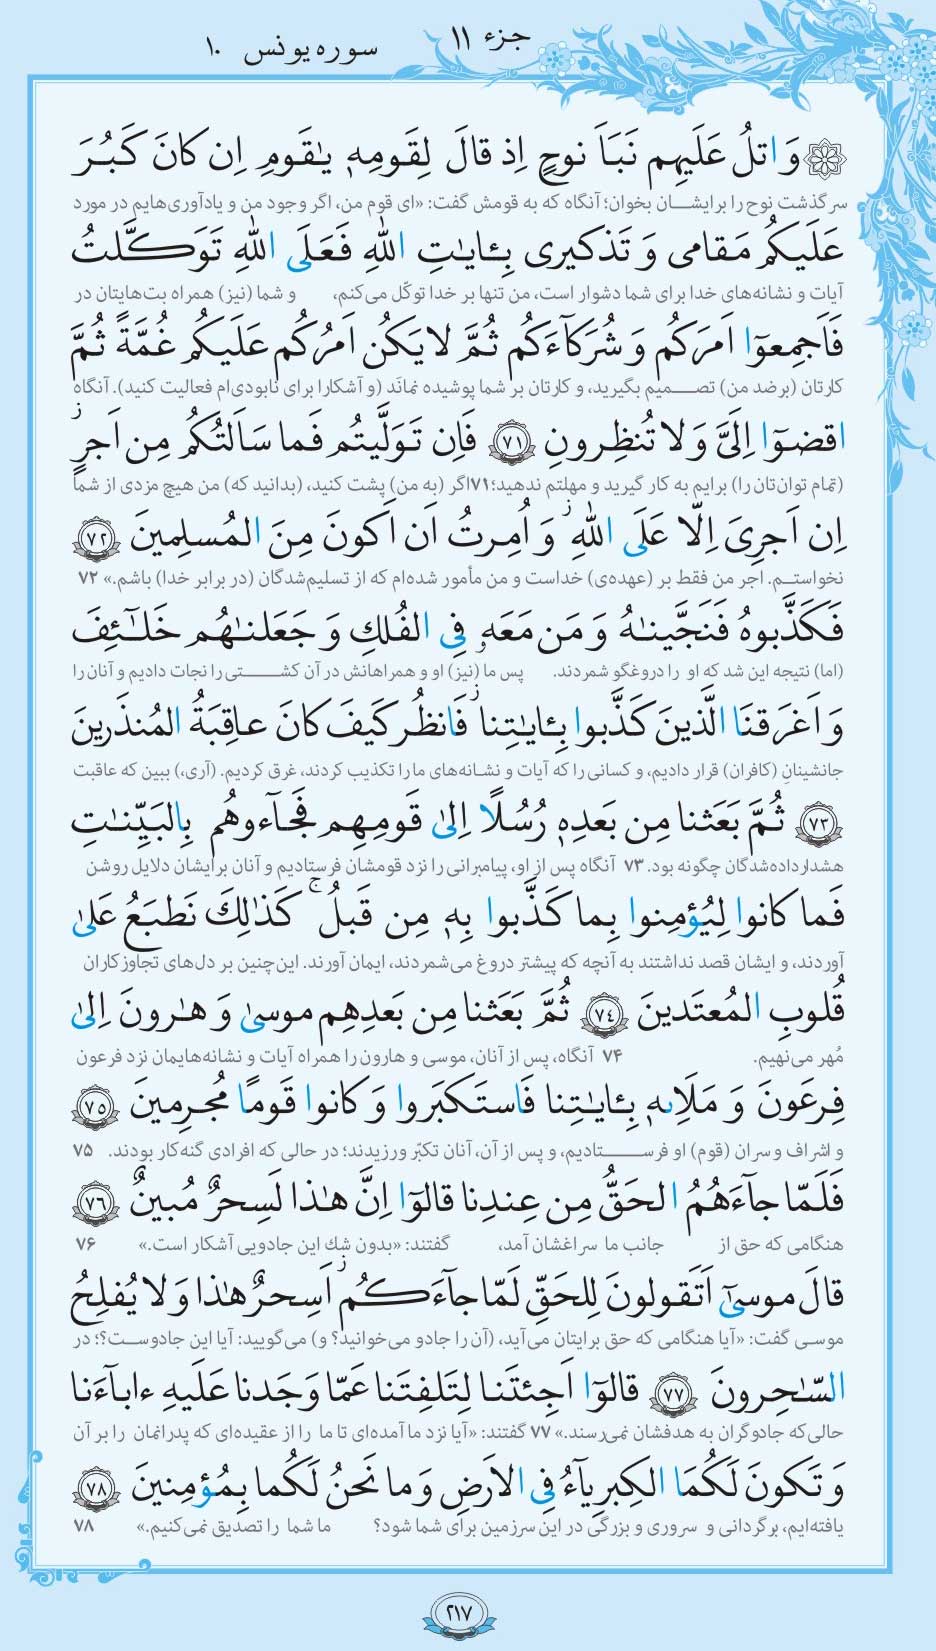 جزء ۱۱
سوره یونس ۱۰
وَ اتلُ عَلَیهِم نَبَاَ نوحٍ اِذ قالَ لِقَومِهٖ یٰقَومِ اِن کانَ کَبُرَ
سرگذشت نوح را برایشان بخوان؛ آنگاه که به قومش گفت: «ای قوم من، اگر وجود من و یادآوری‌هایم در مورد
عَلَیکُم مَقامی وَ تَذکیری بِـٔایٰتِ اللهِ فَعَلَی اللهِ تَوَکَّلتُ
آیات و نشانه‌های خدا برای شما دشوار است، من تنها بر خدا توکّل می‌کنم، و شما (نیز) همراه بت‌هایتان در
فَاَجمِعوٓا اَمرَکُم وَ شُرَکآءَکُم ثُمَّ لا یَکُن اَمرُکُم عَلَیکُم غُمَّةً ثُمَّ
کارتان (برضد من) تصمیم بگیرید، و کارتان بر شما پوشیده نمانَد (و آشکارا برای نابودی‌ام فعالیت کنید). آنگاه
اقضوٓا اِلَیَّ وَ لا تُنظِرونِ ﴿۷۱﴾ فَاِن تَوَلَّیتُم فَما سَاَلتُکُم مِن اَجرٍ ۖ
(تمام توان‌تان را) برایم به کار گیرید و مهلتم ندهید؛ ۷۱ اگر (به من) پشت کنید، (بدانید که) من هیچ مزدی از شما
اِن اَجرِیَ اِلّا عَلَی اللهِ ۖ وَ اُمِرتُ اَن اَکونَ مِنَ المُسلِمینَ ﴿۷۲﴾
نخواستم. اجر من فقط بر (عهده‌ی) خداست و من مأمور شده‌ام که از تسلیم‌شدگان (در برابر خدا) باشم.» ۷۲
فَکَذَّبوهُ فَنَجَّینٰهُ وَ مَن مَعَهٗ فِی الفُلکِ وَ جَعَلنٰهُم خَلٰٓئِفَ
(اما) نتیجه این شد که او را دروغگو شمردند. پس ما (نیز) او و همراهانش در آن کشتی را نجات دادیم و آنان را
وَ اَغرَقنَا الَّذینَ کَذَّبوا بِـٔایٰتِنا ۖ فَانظُر کَیفَ کانَ عاقِبَةُ المُنذَرینَ
جانشینانِ (کافران) قرار دادیم، و کسانی را که آیات و نشانه‌های ما را تکذیب کردند، غرق کردیم. (آری،) ببین که عاقبت
﴿۷۳﴾ ثُمَّ بَعَثنا مِن بَعدِهٖ رُسُلًا اِلیٰ قَومِهِم فَجآءوهُم بِالبَیِّنٰتِ
هشدارداده‌شدگان چگونه بود. ۷۳ آنگاه پس از او، پیامبرانی را نزد قومشان فرستادیم و آنان برایشان دلایل روشن
فَما کانوا لِیُؤمِنوا بِما کَذَّبوا بِهٖ مِن قَبلُ ۚ کَذٰلِکَ نَطبَعُ عَلیٰ
آوردند، و ایشان قصد نداشتند به آنچه که پیشتر دروغ می‌شمردند، ایمان آورند. این‌چنین بر دل‌های تجاوزکاران
قُلوبِ المُعتَدینَ ﴿۷۴﴾ ثُمَّ بَعَثنا مِن بَعدِهِم موسیٰ وَ هٰرونَ اِلیٰ
مُهر می‌نهیم. ۷۴ آنگاه، پس از آنان، موسی و هارون را همراه آیات و نشانه‌هایمان نزد فرعون
فِرعَونَ وَ مَلَاِی۟هٖ بِـٔایٰتِنا فَاستَکبَروا وَ کانوا قَومًا مُجرِمینَ ﴿۷۵﴾
و اشراف و سران (قوم) او فرستادیم، و پس از آن، آنان تکبّر ورزیدند؛ در حالی که افرادی گنه‌کار بودند. ۷۵
فَلَمّا جآءَهُمُ الحَقُّ مِن عِندِنا قالوٓا اِنَّ هٰذا لَسِحرٌ مُبینٌ ﴿۷۶﴾
هنگامی که حق از جانب ما سراغشان آمد، گفتند: «بدون شك این جادویی آشکار است.» ۷۶
قالَ موسیٰٓ اَتَقولونَ لِلحَقِّ لَمّا جآءَکُم ۖ اَسِحرٌ هٰذا وَ لا یُفلِحُ
موسی گفت: «آیا هنگامی که حق برایتان می‌آید، (آن را جادو می‌خوانید؟ و) می‌گویید: آیا این جادوست؟؛ در
السّٰحِرونَ ﴿۷۷﴾ قالوٓا اَجِئتَنا لِتَلفِتَنا عَمّا وَجَدنا عَلَیهِ ءابآءَنا
حالی‌که جادوگران به هدفشان نمی‌رسند.» ۷۷ گفتند: «آیا نزد ما آمده‌ای تا ما را از عقیده‌ای که پدرانمان را بر آن
وَ تَکونَ لَکُمَا الکِبرِیآءُ فِی الاَرضِ وَ ما نَحنُ لَکُما بِمُؤمِنینَ ﴿۷۸﴾
یافته‌ایم، برگردانی و سروری و بزرگی در این سرزمین برای شما شود؟ ما شما را تصدیق نمی‌کنیم.» ۷۸
۲۱۷